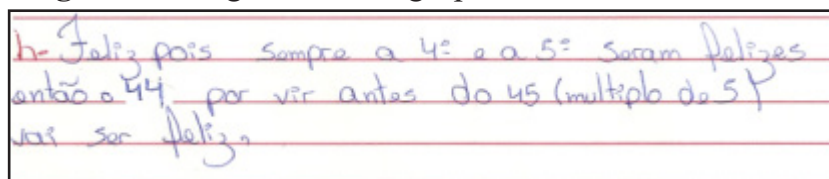 h- Feliz pois sempre a 4º e a 5º seram felizes
então o 44 por vir antes do 45 (multiplo de 5)
vai ser feliz,